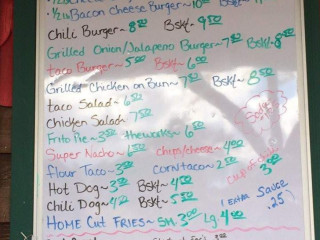 1/2 lb Bacon Cheese Burger~ 10
Chili Burger~ 8⁰⁰ Bsk/~ 9⁵⁰
Grilled Onion/Jalapeno Burger~7 Bsk/~8
taco Burger~ 5⁰⁰ Bsk/~ 6⁰⁰
Grilled Chicken on Bun~7⁵⁰ Bsk/~ 8⁵⁰
taco Salad~ 6⁵⁰
Chicken Salad 7⁵⁰
Frito Pie~3⁵⁰ theworks~ 6⁵⁰
Super Nacho~ 6⁵⁰ chips/cheese~4⁰⁰
flour Taco~ 3⁵⁰ Corn taco~ 2⁵⁰ 3⁰⁰
Hot Dog~ 3⁵⁰ Bsk/~ 4⁵⁰
Chili Dog~ 4²⁵ Bsk/~ 5⁵⁰
1 EXTRA SAUCE .25
HOME Cut FRIES~ SM 3⁰⁰ Lg 4⁰⁰